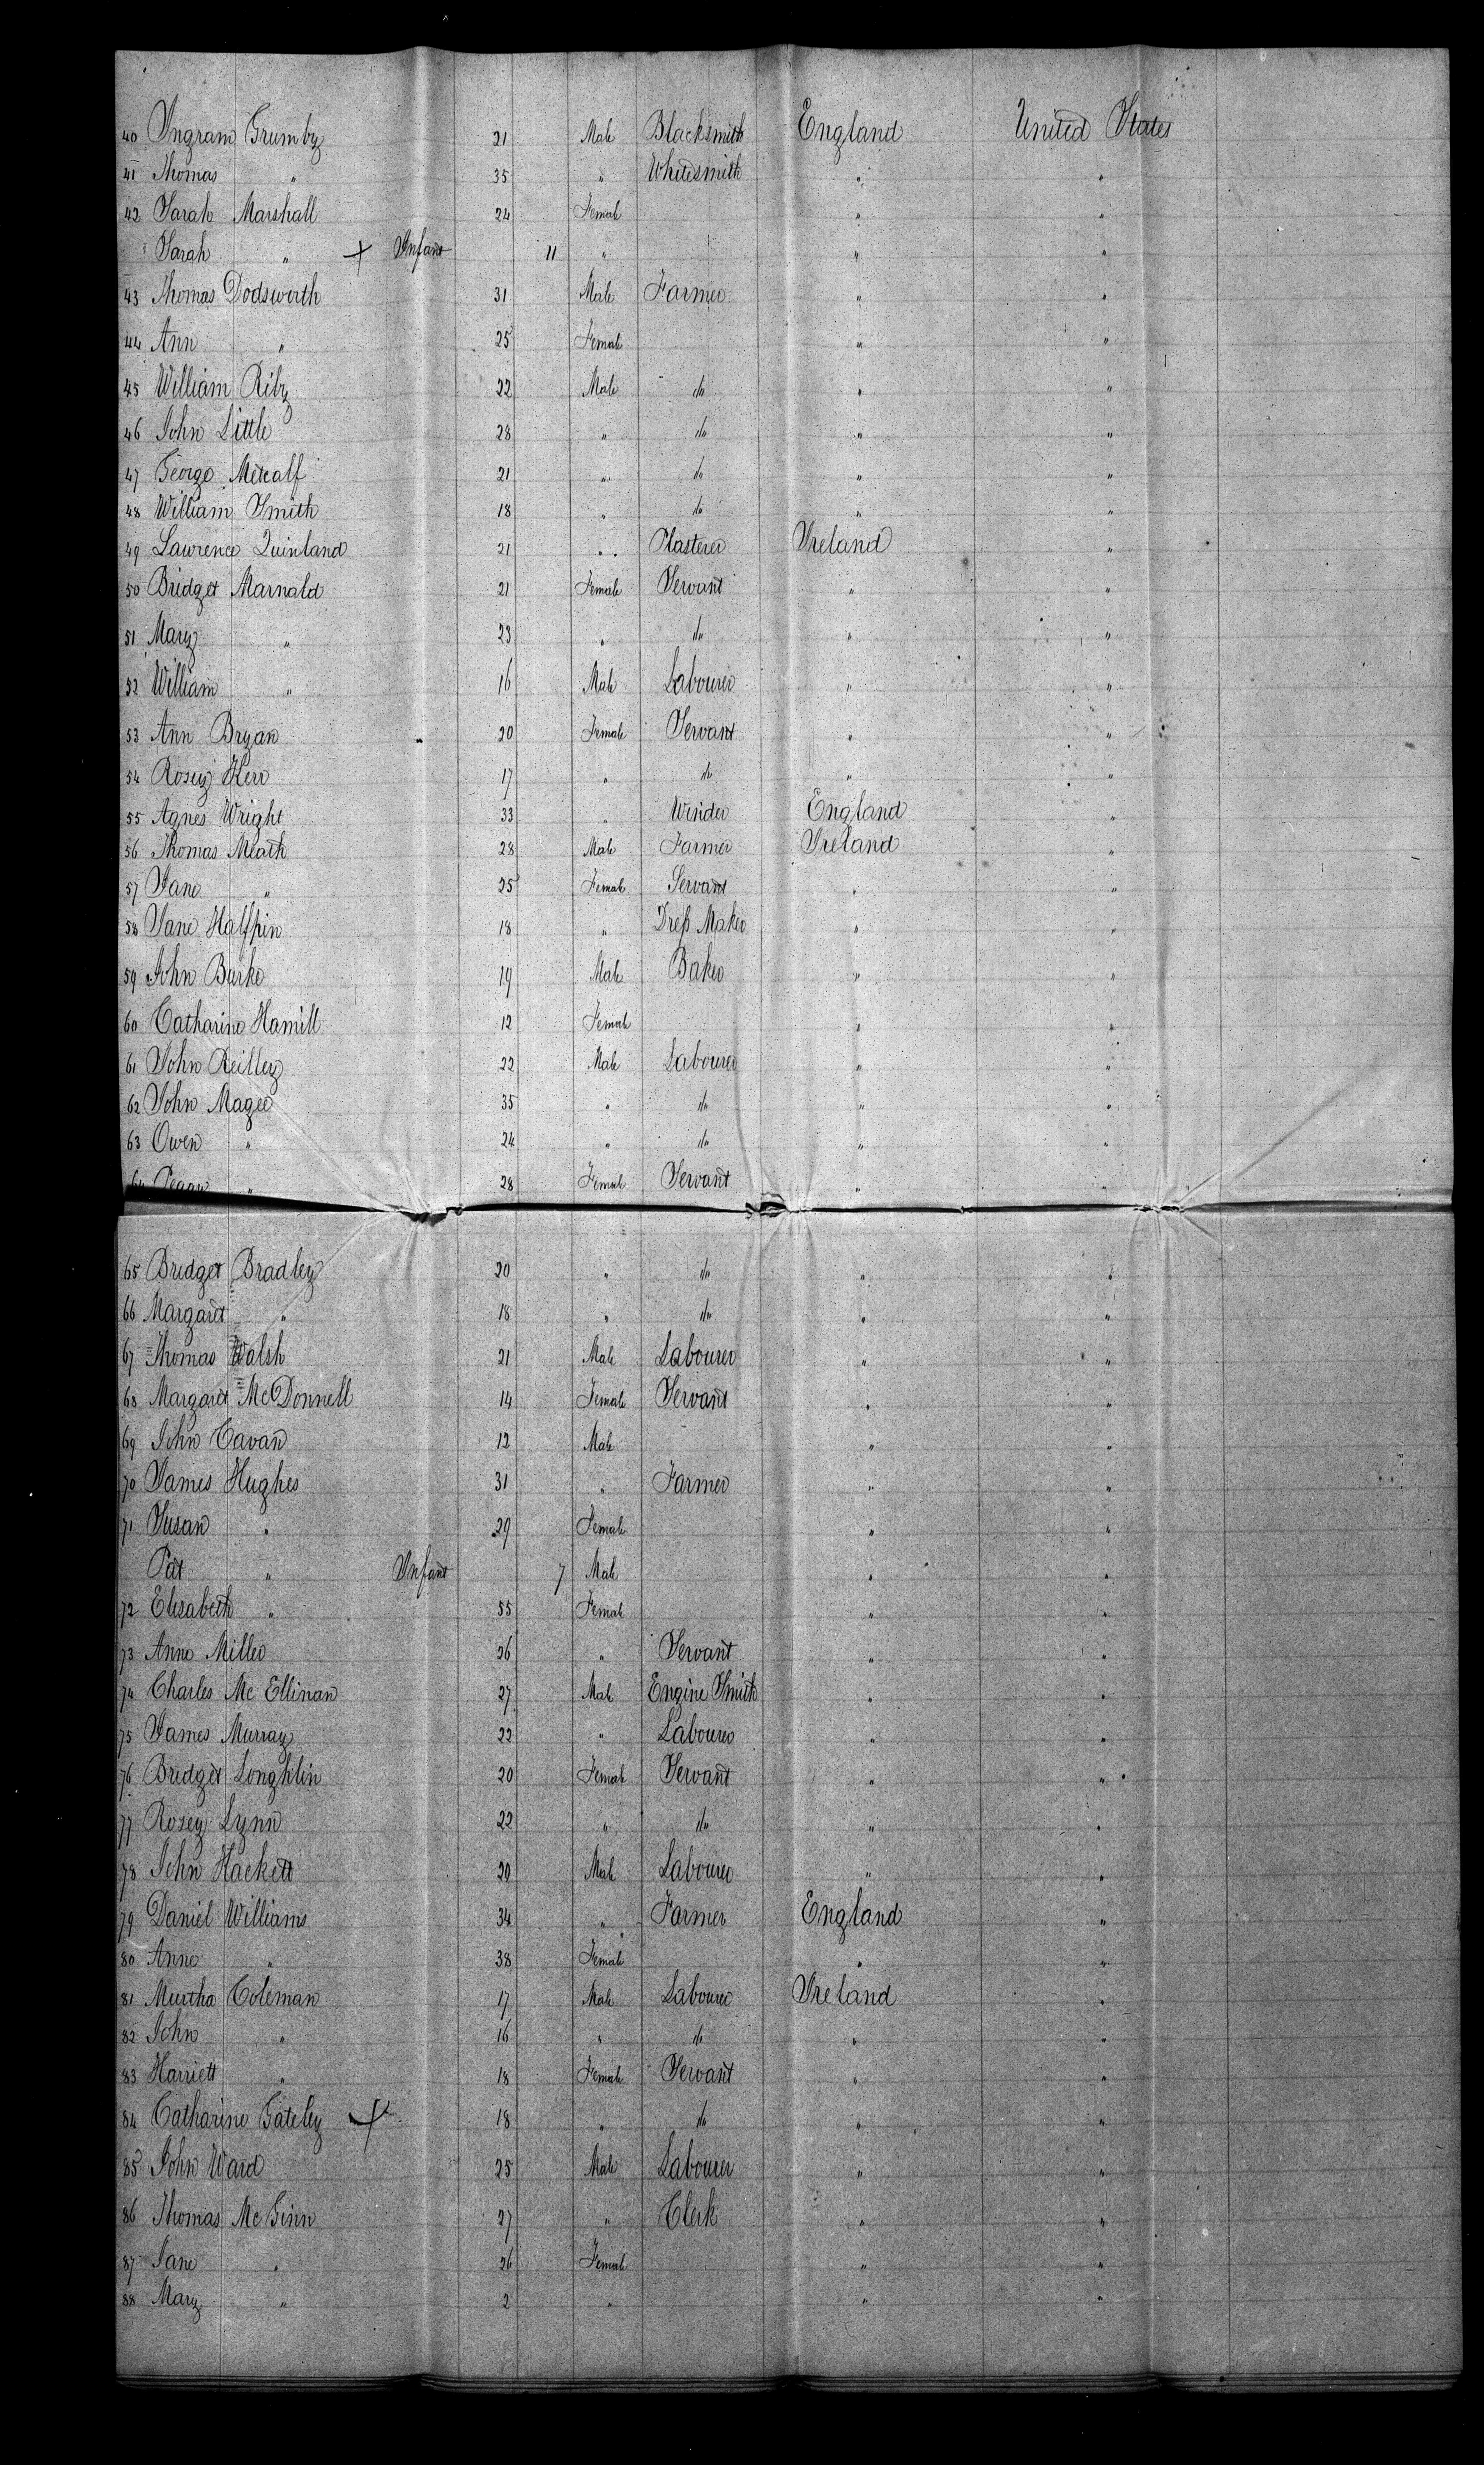 40 Ingram Grumby 21 Male Blacksmith England United States
41 Thomas " 35 " Whitesmith " "
42 Sarah Marshall 24 Female " "
Sarah " + Infant 11 " " "
43 Thomas Dodsworth 31 Male Farmer " "
44 Ann " 25 Female " "
45 William Riby 22 Male do " "
46 John Little 28 " do " "
47 George Metcalf 21 " do " "
48 William Smith 18 " do " "
49 Lawrence Quinland 21 " Plasterer Ireland "
50 Bridget Marnald 21 Female Servant " "
51 Mary " 23 " do " "
52 William " 16 Male Labourer " "
53 Ann Bryan 20 Female Servant " "
54 Rosey Kerr 17 " do " "
55 Agnes Wright 33 " Winder England "
56 Thomas Meath 28 Male Farmer Ireland "
57 Jane " 25 Female Servant " "
58 Jane Halfpin 18 " Dress Maker " "
59 John Burke 19 Male Baker " "
60 Catharine Hamill 12 Female " "
61 John Reilley 22 Male Labourer " "
62 John Magee 35 " do " "
63 Owen " 24 " do " "
64 Peggy " 28 Female Servant " "
65 Bridget Bradley 20 " do " "
66 Margaret " 18 " do " "
67 Thomas Walsh 21 Male Labourer " "
68 Margaret McDonnell 14 Female Servant " "
69 John Cavan 12 Male " "
70 James Hughes 31 " Farmer " "
71 Susan " 29 Female " "
Pat " Infant 7 Male " "
72 Elisabeth " 55 Female " "
73 Anne Miller 26 " Servant " "
74 Charles Mc Ellinan 27 Male Engine Smith " "
75 James Murray 22 " Labourer " "
76 Bridget Loughlin 20 Female Servant " "
77 Rosey Lynn 22 " do " "
78 John Hackett 20 Male Labourer " "
79 Daniel Williams 34 " Farmer England "
80 Anne " 38 Female " "
81 Murtha Coleman 17 Male Labourer Ireland "
82 John " 16 " do " "
83 Harriett " 18 Female Servant " "
84 Catharine Gateley + 18 " do " "
85 John Ward 25 Male Labourer " "
86 Thomas Mc Ginn 27 " Clerk " "
87 Jane " 26 Female " "
88 Mary " 2 " " "